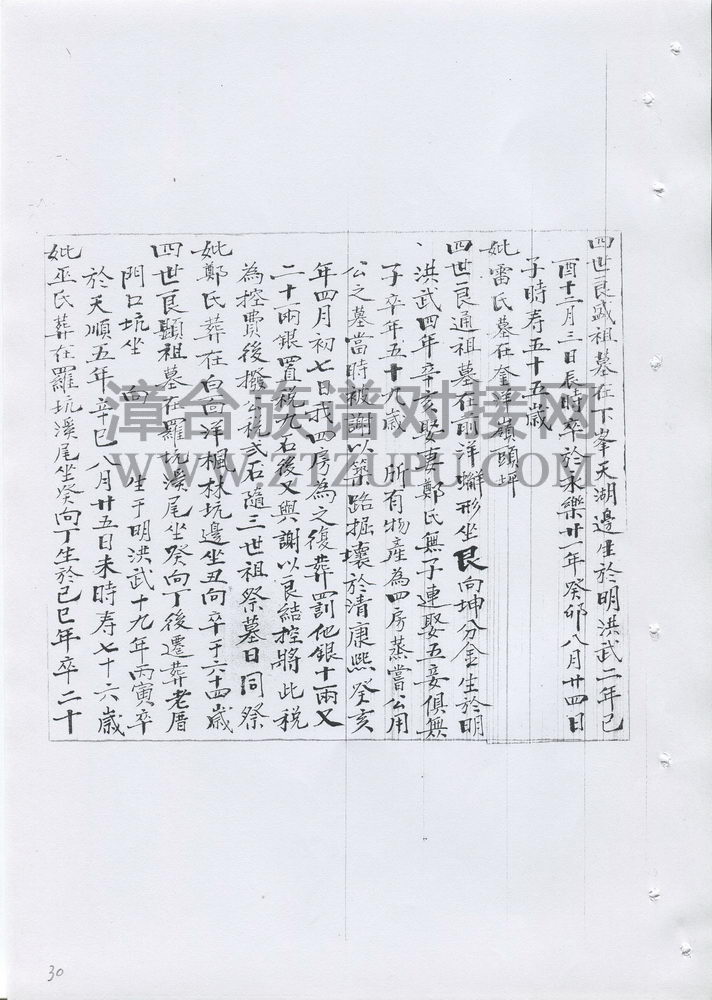 四世良盛祖墓在下峯天湖邊生於明洪武二年己
酉十二月三日辰時卒於永樂廿一年癸卯八月廿四日
子時寿五十五歳
妣雷氏墓在奎洋嶺頭坪
四世良通祖墓在前洋獅形坐艮向坤分金生於明
洪武四年辛亥娶妻鄭氏無子連娶五妾俱無
子卒年五十九歳 所有物産為四房蒸嘗公用
公之墓當時被謝以築路掘壞於清康熙癸亥
年四月初七日我四房為之復葬罰他銀十兩又
二十兩銀置税九石後又與謝以良結控將此税
為控費後撥出税弍石隨三世祖祭墓日同祭
妣鄭氏葬在白高洋楓林坑邊坐丑向卒于六十四歳
四世良顯祖墓在羅坑溪尾坐癸向丁後遷葬老厝
門口坑坐 向 生于明洪武十九年丙寅卒
於天順五年辛巳八月廿五日未時寿七十六歳
妣巫氏葬在羅坑溪尾坐癸向丁生於己巳年卒二十
漳台族谱对接网
WWW.ZTZUPU.COM
30